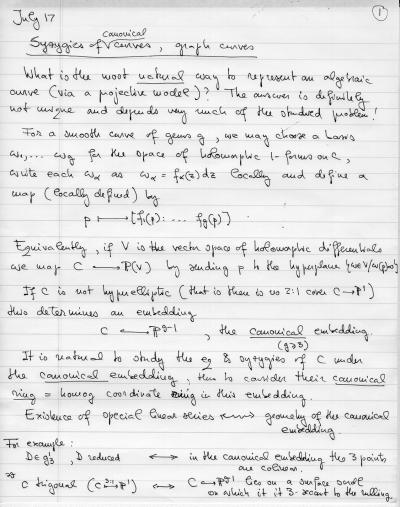 July 17
①
Syzygies of canonical curves, graph curves
What is the most natural way to represent an algebraic
curve (via a projective model)? The answer is definitely
not unique and depends very much of the studied problem!
For a smooth curve of genus g, we may choose a basis
ω₁,... ωg for the space of holomorphic 1-forms on C,
write each ωα as ωα = fα(z)dz locally and define a
map (locally defined) by
p ↦ [f₁(p): ... fg(p)]
Equivalently, if V is the vector space of holomorphic differentials
we map C → P(V) by sending p to the hyperplane {ω∈V/ω(p)=0}
If C is not hyperelliptic (that is there is no 2:1 cover C→P¹)
this determines an embedding
C ↪ P^{g-1}, the canonical embedding.
(g≥3)
It is natural to study the eq & syzygies of C under
the canonical embedding, thus to consider their canonical
ring = homog coordinate ring in this embedding.
Existence of special linear series ↭ geometry of the canonical
embedding.
For example:
D∈g¹₃, D reduced ↔ in the canonical embedding the 3 points
are colinear.
⇒ C trigonal (C →^{3:1} P¹) ↔ C↪P^{g-1} lies on a surface scroll
on which it it 3-secant to the rulling.